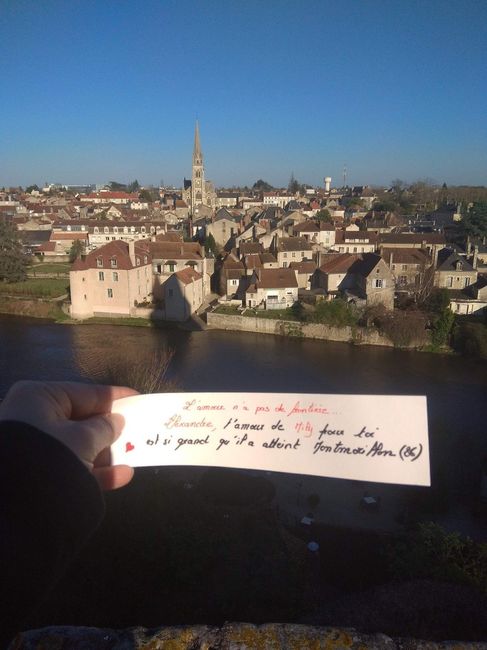 L'amour n'a pas de frontière...
Alexandre, l'amour de Mily pour toi
est si grand qu'il a atteint Montmorillon (86)